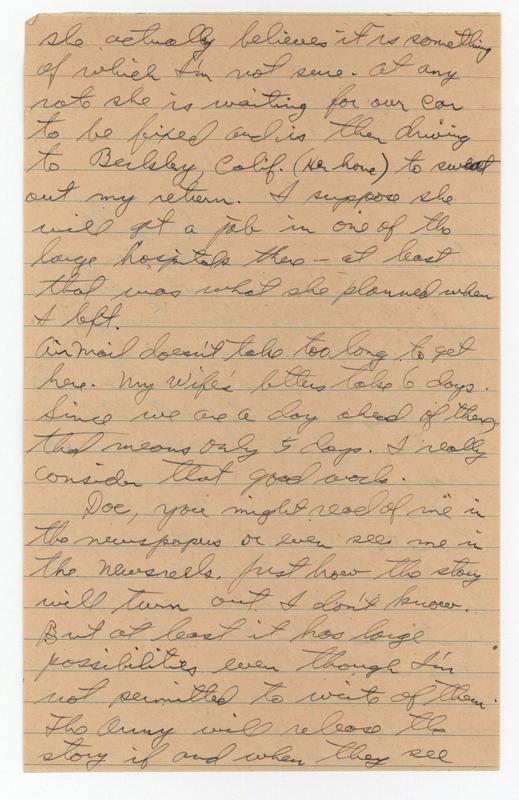 she actually believes it is something
of which I'm not sure. At any
rate she is waiting for our car
to be fixed and is then driving
to Berkeley, Calif. (Her home) to sweat
out my return. I suppose she
will get a job in one of the
large hospitals there — at least
that was what she planned when
I left.
Air Mail doesn't take too long to get
here. My Wife's letters take 6 days.
Since we are a day ahead of them,
that means only 5 days. I really
consider that good work.
Doc, you might read of me in
the newspapers or even see me in
the newsreels. Just how the story
will turn out I don't know.
But at least it has large
possibilities even though I'm
not permitted to write of them.
The Army will release the
story if and when they see